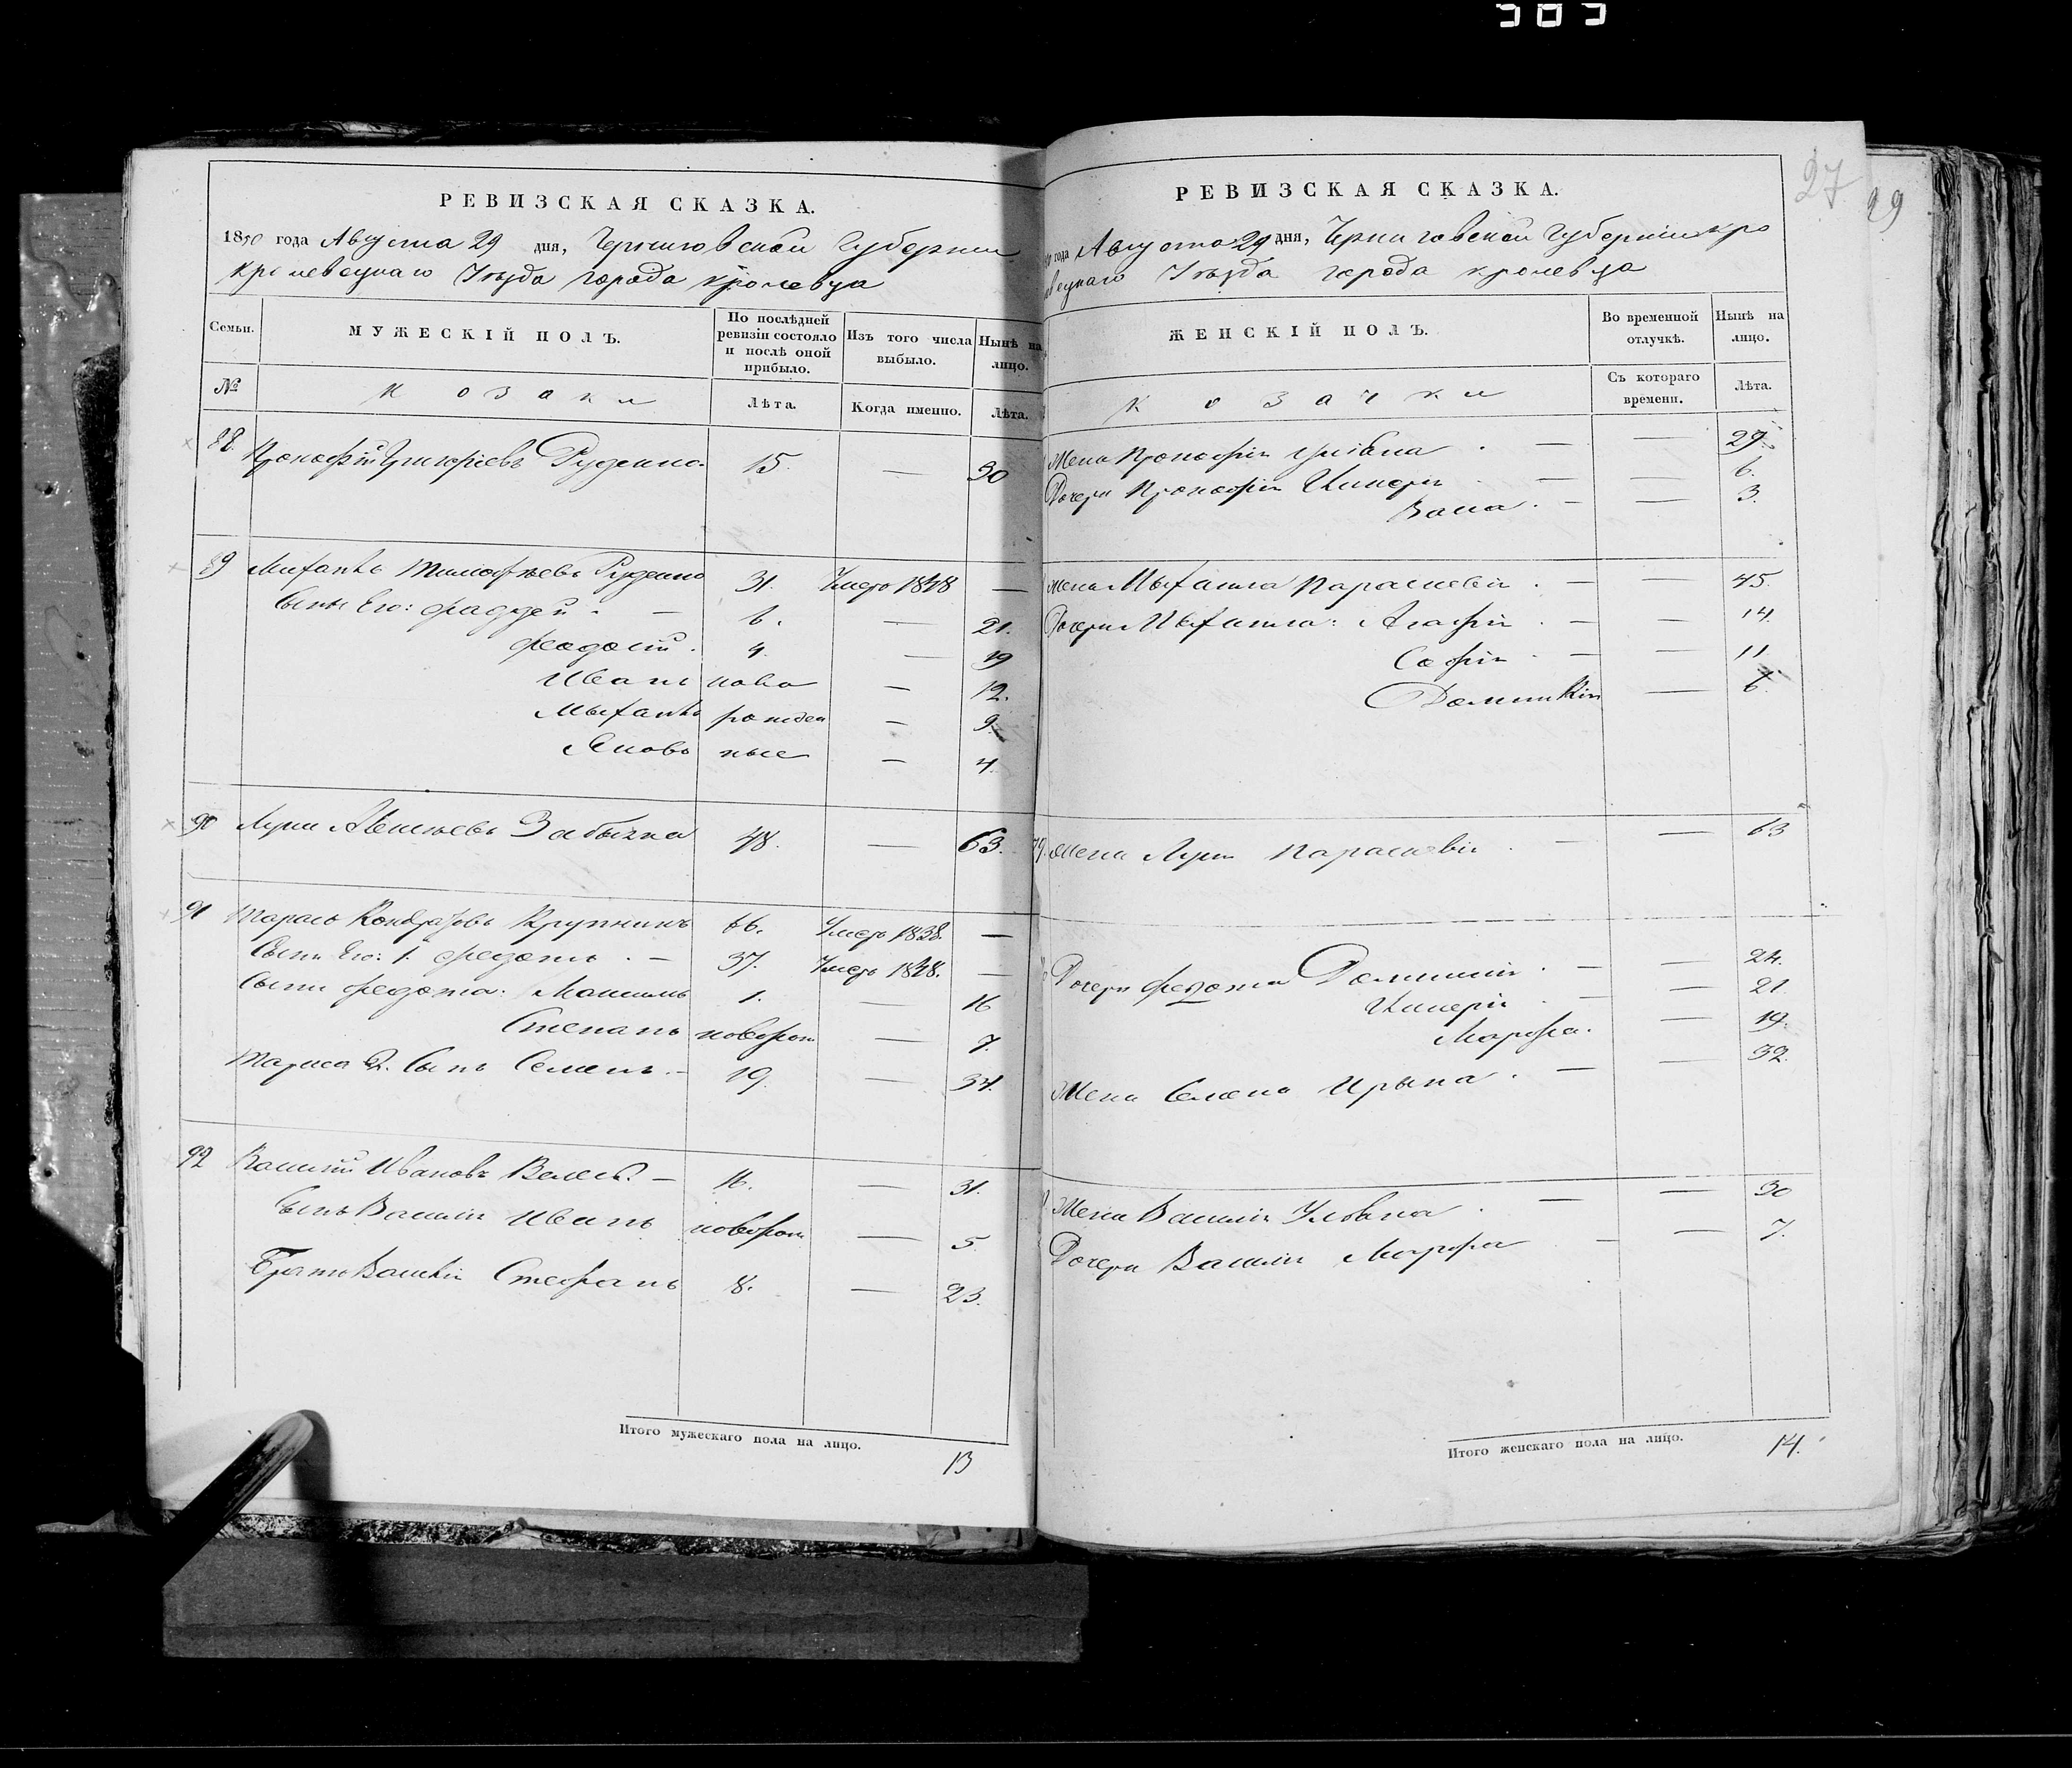 РЕВИЗСКАЯ СКАЗКА.
1850 года Августа 29 дня, Черниговской Губернии
Кролевецкаго Уѣзда города Кролевца
Семьи. МУЖЕСКІЙ ПОЛЪ. По послѣдней ревизіи состояло и послѣ оной прибыло. Изъ того числа выбыло. Нынѣ на лицо.
№ Козаки Лѣта. Когда именно. Лѣта.
88. Прокофій Григоріевъ Руденко. 15. — 30
89 Михаилъ Тимофѣевъ Руденко 31. Умеръ 1848 —
Сыны Его: Фаддей — 6. — 21.
Феодосій. 4. — 19
Иванъ ново — 12.
Михаилъ рожден — 9.
Яковъ ные — 4.
90 Лука Авксѣевъ Забычка 48. — 63.
91 Тарасъ Кондратовъ Крупникъ 66. Умеръ 1838. —
Сынъ Его: 1. Федотъ. — 37. Умеръ 1848. —
Сыны Федота: Максимъ 1. — 16
Степанъ новорож — 7.
Тараса 2. Сынъ Семенъ. — 19. — 34.
92 Василій Ивановъ — 16. — 31.
Сынъ Василія Иванъ новорож — 5.
Братъ Василія Стефанъ 8. — 23.
Итого мужескаго пола на лицо. 13
27
29
РЕВИЗСКАЯ СКАЗКА.
года Августа 29 дня, Черниговской Губерніи Кро
вецкаго Уѣзда города Кролевца
ЖЕНСКІЙ ПОЛЪ. Во временной отлучкѣ. Нынѣ на лицо.
Козачки Съ котораго времени. Лѣта.
Жена Прокофія Ульяна — — 29.
Дочери Прокофія Химерія — — 6.
Васса. — — 3.
Жена Михаила Параскевія — — 45.
Дочери Михаила: Агафія — — 14.
Софія — — 11
Домникія — 6.
Жена Луки Параскевія — — 63
Дочери Федота Домникія — — 24.
Химерія — — 21.
Марфа. — 19.
Жена Семена Ирына — — 32.
Жена Василія Ульяна — — 30
Дочери Василія Марфа — — 7.
Итого женскаго пола на лицо. 14.